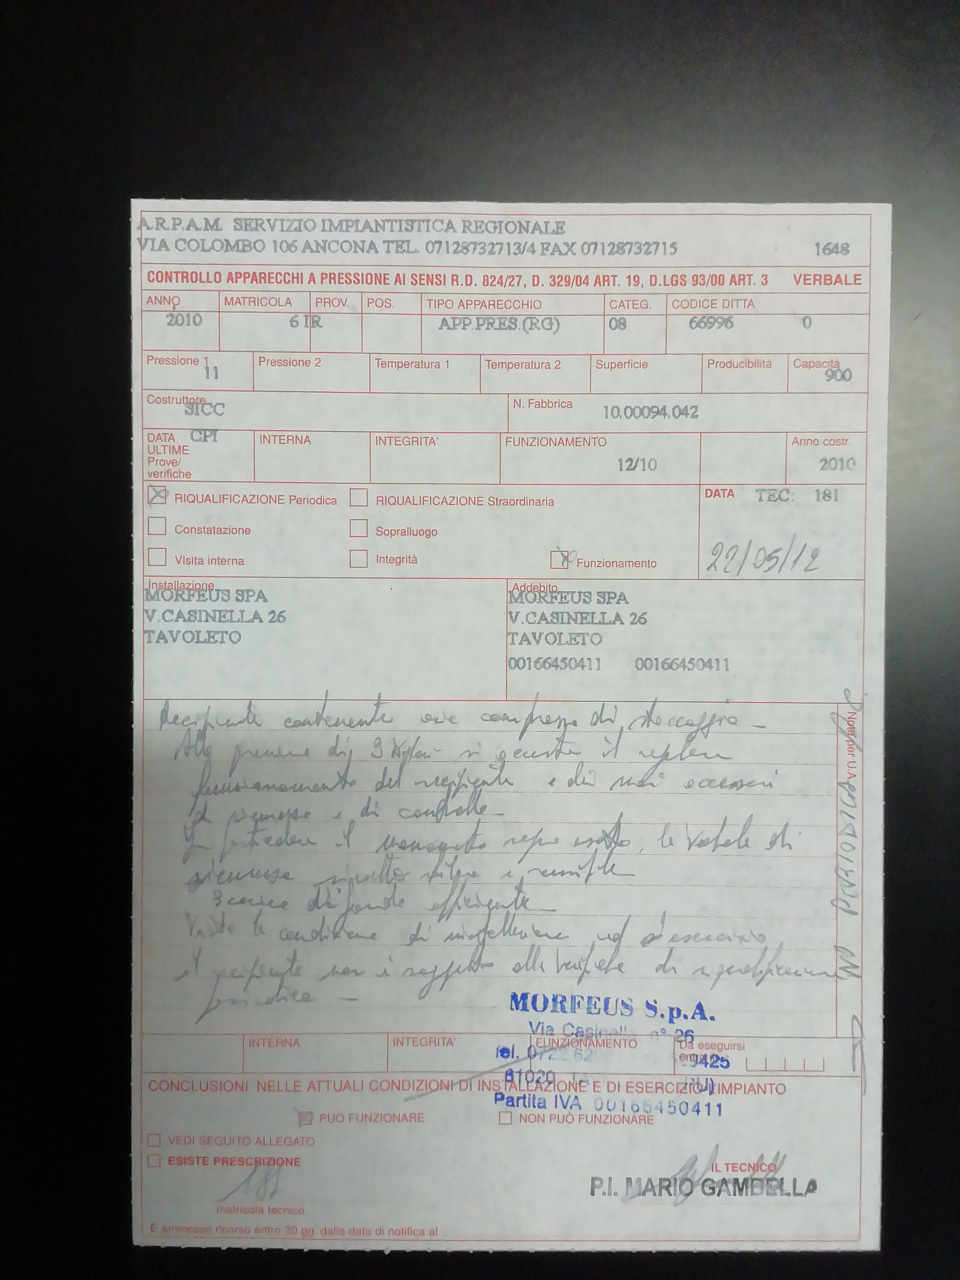 A.R.P.A.M. SERVIZIO IMPIANTISTICA REGIONALE
VIA COLOMBO 106 ANCONA TEL. 07128732713/4 FAX 07128732715 1648
CONTROLLO APPARECCHI A PRESSIONE AI SENSI R.D. 824/27, D. 329/04 ART. 19, D.LGS 93/00 ART. 3 VERBALE
ANNO MATRICOLA PROV. POS. TIPO APPARECCHIO CATEG. CODICE DITTA
2010 6 IR APP.PRES.(RG) 08 66996 0
Pressione 1 Pressione 2 Temperatura 1 Temperatura 2 Superficie Producibilità Capacità
11 900
Costruttore N. Fabbrica
SICC 10.00094.042
DATA CPI INTERNA INTEGRITA' FUNZIONAMENTO Anno costr.
ULTIME
Prove/ 12/10 2010
verifiche
RIQUALIFICAZIONE Periodica RIQUALIFICAZIONE Straordinaria DATA TEC: 181
Constatazione Sopralluogo
Visita interna Integrità Funzionamento 22/05/12
Installazione Addebito
MORFEUS SPA MORFEUS SPA
V.CASINELLA 26 V.CASINELLA 26
TAVOLETO TAVOLETO
00166450411 00166450411
Recipiente contenente compressa di stoccaggio
Alla di si il
funzionamento del recipiente e dei suoi accessori
di e di controllo
il la valvola di
sicurezza e
efficiente
Viste le condizioni di installazione ed d'esercizio
il recipiente non è soggetto alla verifica di riqualificazione
periodica
Note per U.A.
MORFEUS S.p.A.
Via n° 26
INTERNA INTEGRITA' FUNZIONAMENTO Da eseguirsi
Tel. 0722 9425
61029
CONCLUSIONI NELLE ATTUALI CONDIZIONI DI INSTALLAZIONE E DI ESERCIZIO L'IMPIANTO
Partita IVA 00166450411
PUÒ FUNZIONARE NON PUÒ FUNZIONARE
VEDI SEGUITO ALLEGATO
ESISTE PRESCRIZIONE IL TECNICO
181 P.I. MARIO GAMBELLA
matricola tecnico
È ammesso ricorso entro 30 gg. dalla data di notifica al